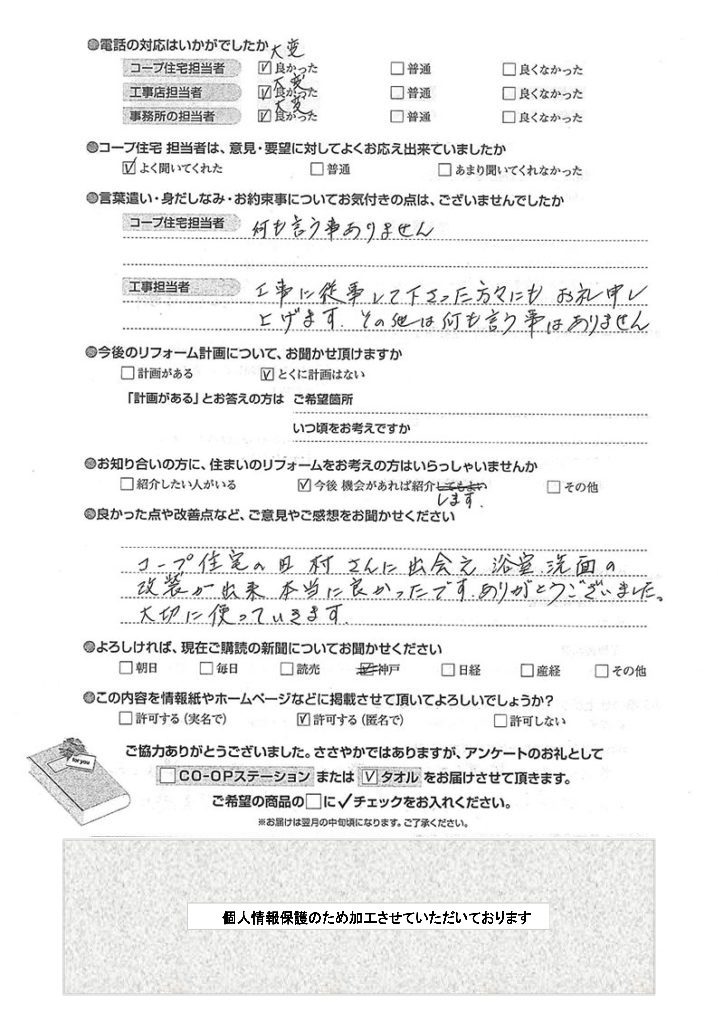 ●電話の対応はいかがでしたか
大変
コープ住宅担当者 ☑良かった □普通 □良くなかった
大変
工事店担当者 ☑良かった □普通 □良くなかった
大変
事務所の担当者 ☑良かった □普通 □良くなかった
●コープ住宅 担当者は、意見・要望に対してよくお応え出来ていましたか
☑よく聞いてくれた □普通 □あまり聞いてくれなかった
●言葉遣い・身だしなみ・お約束事についてお気付きの点は、ございませんでしたか
コープ住宅担当者 何も言う事ありません
工事担当者 工事に従事して下さった方々にも お礼申し
上げます. その他は何も言う事はありません
●今後のリフォーム計画について、お聞かせ頂けますか
□計画がある ☑とくに計画はない
「計画がある」とお答えの方は ご希望箇所
いつ頃をお考えですか
●お知り合いの方に、住まいのリフォームをお考えの方はいらっしゃいませんか
□紹介したい人がいる ☑今後 機会があれば紹介してもよい □その他
します.
●良かった点や改善点など、ご意見やご感想をお聞かせください
コープ住宅の 村 さんに 出会え 浴室.洗面の
改装が出来 本当に良かったです.ありがとうございました。
大切に使っていきます.
●よろしければ、現在ご購読の新聞についてお聞かせください
□朝日 □毎日 □読売 ☑神戸 □日経 □産経 □その他
●この内容を情報紙やホームページなどに掲載させて頂いてよろしいでしょうか?
□許可する(実名で) ☑許可する(匿名で) □許可しない
for you
ご協力ありがとうございました。ささやかではありますが、アンケートのお礼として
□CO-OPステーション または ☑タオル をお届けさせて頂きます。
ご希望の商品の□に✓チェックをお入れください。
※お届けは翌月の中旬頃になります。ご了承ください。
個人情報保護のため加工させていただいております